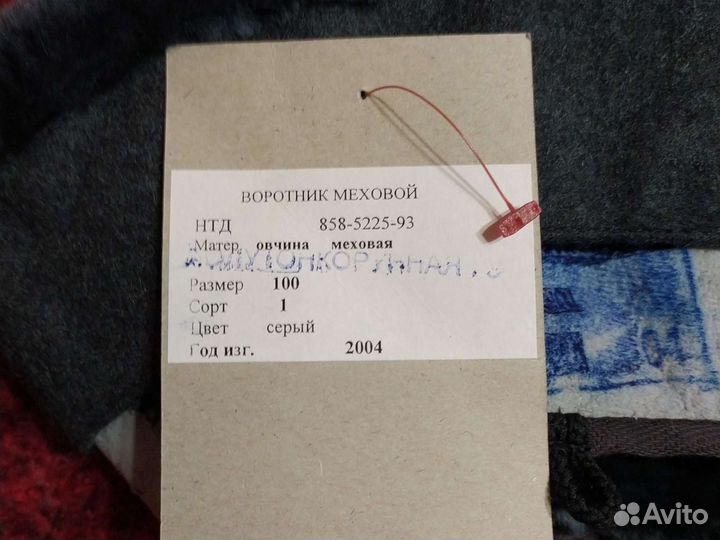 ВОРОТНИК МЕХОВОЙ
НТД 858-5225-93
Матер. овчина меховая
Размер 100
Сорт 1
Цвет серый
Год изг. 2004
Avito